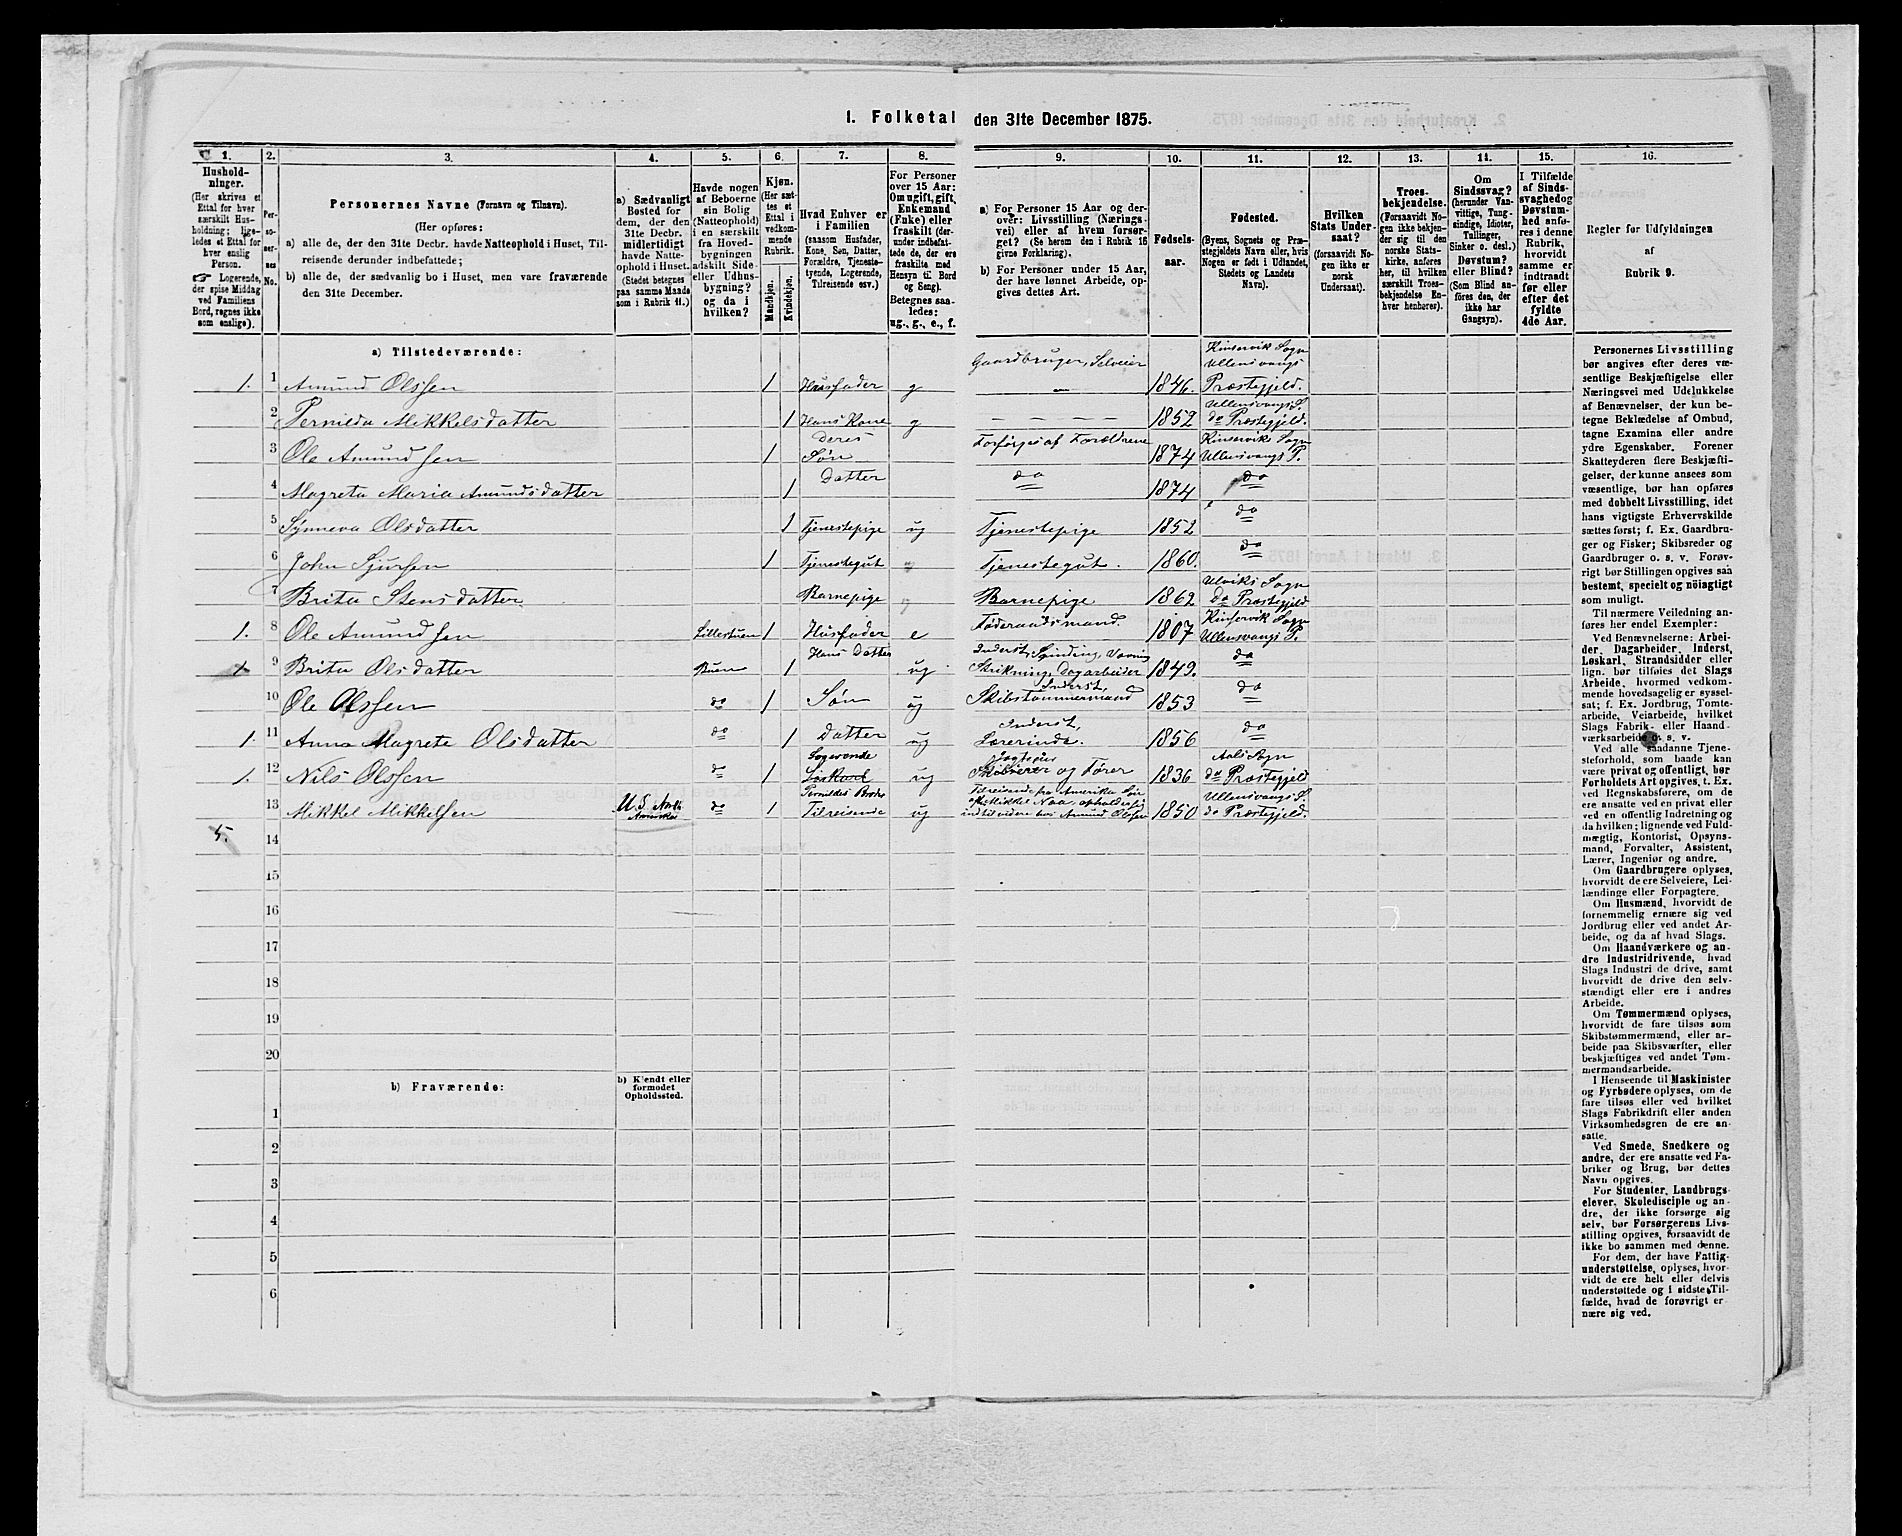 1. Folketal den 31te December 1875.
1.
Husholdninger.
(Her skrives et Ettal for hver særskilt Husholdning; ligeledes et Ettal for hver enslig Person.
☞ Logerende, der spise Middag ved Familiens Bord, regnes ikke som enslige).
2.
Personernes No.
3.
Personernes Navne (Fornavn og Tilnavn).
(Her opføres:
a) alle de, der den 31te Decbr. havde Natteophold i Huset, Tilreisende derunder indbefattede;
b) alle de, der sædvanlig bo i Huset, men vare fraværende den 31te December.
4.
a) Sædvanligt Bosted for dem, der den 31te Decbr. midlertidigt havde Natteophold i Huset.
(Stedet betegnes paa samme Maade som i Rubrik 11.)
5.
Havde nogen af Beboerne sin Bolig (Natteophold) i en særskilt fra Hovedbygningen adskilt Side- eller Udhusbygning? og da i hvilken?
6.
Kjøn.
(Her sættes et Ettal i vedkommende Rubrik.
Mandkjøn.
Kvindekjøn.
7.
Hvad Enhver er i Familien
(saasom Husfader, Kone, Søn, Datter, Forældre, Tjenestetyende, Logerende, Tilreisende osv.)
8.
For Personer over 15 Aar: Om ugift, gift, Enkemand (Enke) eller fraskilt (derunder indbefattede de, der ere fraskilte med Hensyn til Bord og Seng).
Betegnes saaledes: ug., g., e., f.
9.
a) For Personer 15 Aar og derover: Livsstilling (Næringsvei) eller af hvem forsørget? (Se herom den i Rubrik 16 givne Forklaring).
b) For Personer under 15 Aar, der have lønnet Arbeide, opgives dettes Art.
10.
Fødselsaar.
11.
Fødested.
(Byens, Sognets og Præstegjeldets Navn eller, hvis Nogen er født i Udlandet, Stedets og Landets Navn).
12.
Hvilken Stats Undersaat?
(forsaavidt Nogen ikke er norsk Undersaat).
13.
Troesbekjendelse.
(Forsaavidt Nogen ikke bekjender sig til den norske Statskirke, anføres her, til hvilken særskilt Troesbekjendelse Enhver henhører).
14.
Om Sindssvag? (herunder Vanvittige, Tungsindige, Idioter, Tullinger, Sinker o. desl.) Døvstum? eller Blind? (Som Blind anføres den, der ikke har Gangsyn).
15.
I Tilfælde af Sindssvaghed og Døvstumhed anføres i denne Rubrik, hvorvidt samme er indtraadt før eller efter det fyldte 4de Aar.
16.
Regler for Udfyldningen af Rubrik 9.
a) Tilstedeværende:
1. 1 Amund Olssen 1 Husfader g Gaardbruger, Selveier 1846 Kinservik Sogn Ullensvangs Præstegjeld.
2 Pernilda Mikkelsdatter 1 Hans Kone g — — — — 1852 Ullensvangs S. do Præstegjeld.
3 Ole Amundsen 1 Deres Søn Forsörges af Forældrene 1874 Kinservik Sogn Ullensvangs P.
4 Magreta Maria Amundsdatter 1 Datter do 1874 do
5 Synneva Olsdatter 1 Tjenestepige ug Tjenestepige 1852 do
6 John Sjursen 1 Tjenestegut Tjenestegut. 1860. do
7 Brita Stensdatter Barnepige Barnepige 1862 Ulviks Sogn do Præstegjeld
1. 8 Ole Amundsen Lillestuen 1 Husfader e Föderaadsmand. 1807 Kinservik Sogn Ullensvangs P.
1 9 Brita Olsdatter Buen 1 Hans Datter ug Inderst, Spinding, Vævning Strikning, Dagarbeider 1849. do
10 Ole Olssen do 1 Søn ug Inderst, Skibstømmermand 1853 do
1. 11 Anna Magrete Olsdatter do 1 Datter ug Inderst, Lærerinde. 1856 do
1. 12 Nils Olssen do 1 Logerende ug og Fører 1836 Aals Sogn do Præstegjeld
13 Mikkel Mikkelsen U S Amerika do 1 Pernildes Broder Tilreisende ug Tilreisende fra Amerika Søn af Mikkel Naa, opholder sig indtil videre hos Amund Olssen 1850 Ullensvangs S. do Præstegjeld.
5.
14
15
16
17
18
19
20
b) Fraværende:
b) Kjendt eller formodet Opholdssted.
1
2
3
4
5
6
Personernes Livsstilling bør angives efter deres væsentlige Beskjæftigelse eller Næringsvei med Udelukkelse af Benævnelser, der kun betegne Beklædelse af Ombud, tagne Examina eller andre ydre Egenskaber. Forener Skatteyderen flere Beskjæftigelser, der kunne ansees som væsentlige, bør han opføres med dobbelt Livsstilling, idet hans vigtigste Erhvervskilde sættes først; f. Ex. Gaardbruger og Fisker; Skibsreder og Gaardbruger o. s. v. Forøvrigt bør Stillingen opgives saa bestemt, specielt og nøiagtigt som muligt.
Til nærmere Veiledning anføres her endel Exempler:
Ved Benævnelserne: Arbeider, Dagarbeider, Inderst, Løskarl, Strandsidder eller lign. bør tilføies det Slags Arbeide, hvormed vedkommende hovedsagelig er sysselsat; f. Ex. Jordbrug, Tomtearbeide, Veiarbeide, hvilket Slags Fabrik- eller Haandværksarbeide o. s. v.
Ved alle saadanne Tjenesteforhold, som baade kan være privat og offentligt, bør Forholdets Art opgives, t. Ex. ved Regnskabsførere, om de ere ansatte ved en privat eller ved en offentlig Indretning og da hvilken; lignende ved Fuldmægtig, Kontorist, Opsynsmand, Forvalter, Assistent, Lærer, Ingeniør og andre.
Om Gaardbrugere oplyses, hvorvidt de ere Selveiere, Leilændinge eller Forpagtere.
Om Husmænd, hvorvidt de fornemmelig ernære sig ved Jordbrug eller ved andet Arbeide, og da af hvad Slags.
Om Haandværkere og andre Industridrivende, hvad Slags Industri de drive, samt hvorvidt de drive den selvstændigt eller ere i andres Arbeide.
Om Tømmermænd oplyses, hvorvidt de fare tilsøs som Skibstømmermænd, eller arbeide paa Skibsværfter, eller beskjæftiges ved andet Tømmermandsarbeide.
I Henseende til Maskinister og Fyrbødere oplyses, om de fare tilsøs eller ved hvilket Slags Fabrikdrift eller anden Virksomhedsgren de ere ansatte.
Ved Smede, Snedkere og andre, der ere ansatte ved Fabriker og Brug, bør dettes Navn opgives.
For Studenter, Landbrugselever, Skoledisciple og andre, der ikke forsørge sig selv, bør Forsørgerens Livsstilling opgives, forsaavidt de ikke bo sammen med denne.
For dem, der have Fattigunderstøttelse, oplyses, hvorvidt de ere helt eller delvis understøttede og i sidste Tilfælde, hvad de forøvrigt ernære sig ved.